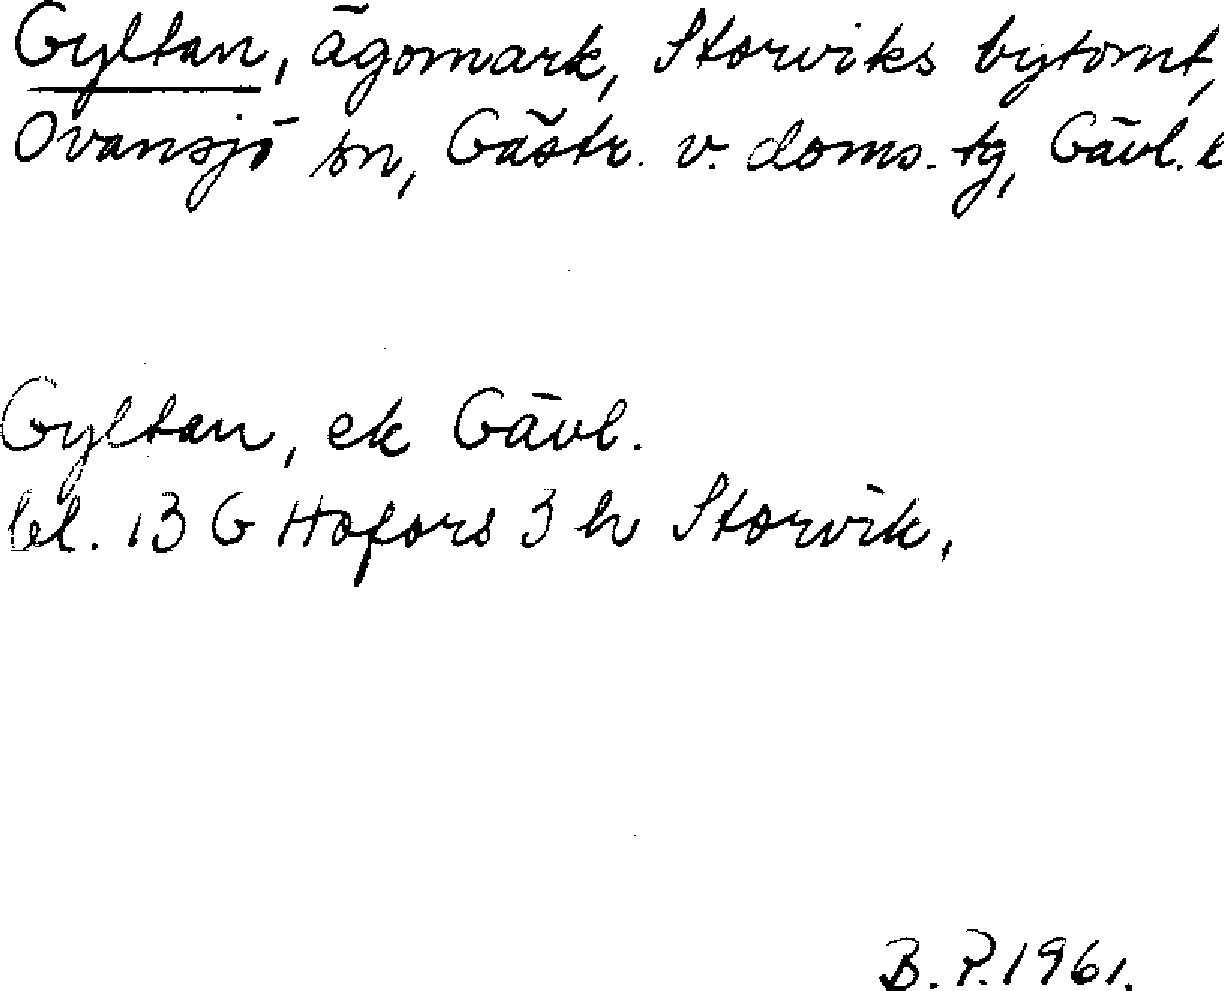 Gyltan, ägomark, Storviks bytomt,
Ovansjö sn, Gästr. v. doms. tg, Gävl. l
Gyltan, ek Gävl.
bl. 13 G Hofors 3 h Storvik.
B. P. 1961.